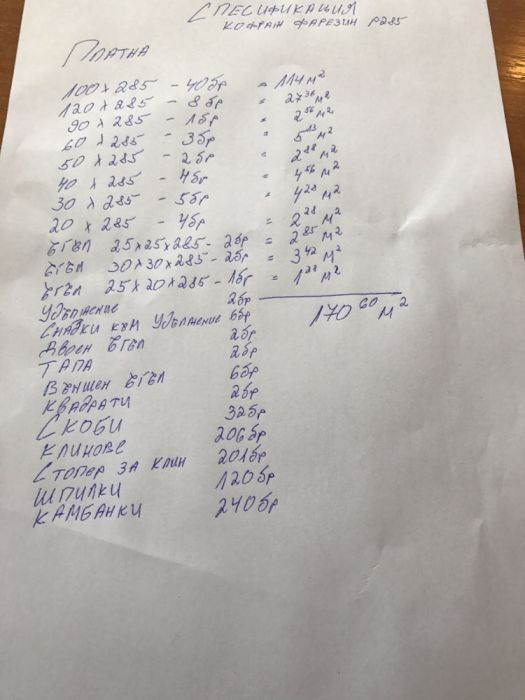 СПЕСИФИКАЦИЯ
КОФРАЖ ФАРЕЗИН P285
ПЛАТНА
100 x 285 - 40бр = 114 м²
120 x 285 - 8бр = 27³⁶ м²
90 x 285 - 1бр = 2⁵⁶ м²
60 x 285 - 3бр = 5¹³ м²
50 x 285 - 2бр = 2⁸⁸ м²
40 x 285 - 4бр = 4⁵⁶ м²
30 x 285 - 5бр = 4²⁸ м²
20 x 285 - 4бр = 2²⁸ м²
ЪГЪЛ 25x25x285 - 2бр = 2⁸⁵ м²
ЪГЪЛ 30x30x285 - 2бр = 3⁴² м²
ЪГЪЛ 25x20x285 - 1бр = 1²⁸ м²
УДЪЛЖЕНИЕ 2бр
СНАДКИ КЪМ УДЪЛЖЕНИЕ 6бр 170⁶⁰ м²
ДВОЕН ЪГЪЛ 2бр
ТАПА 2бр
ВЪНШЕН ЪГЪЛ 6бр
КВАДРАТИ 2бр
СКОБИ 32бр
КЛИНОВЕ 206бр
СТОПЕР ЗА КЛИН 201бр
ШПИЛКИ 120бр
КАМБАНКИ 240бр